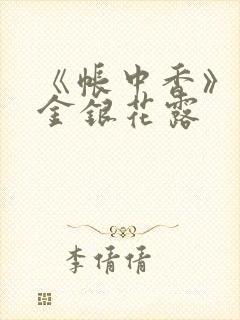 《帐中香》
金银花露
李倩倩